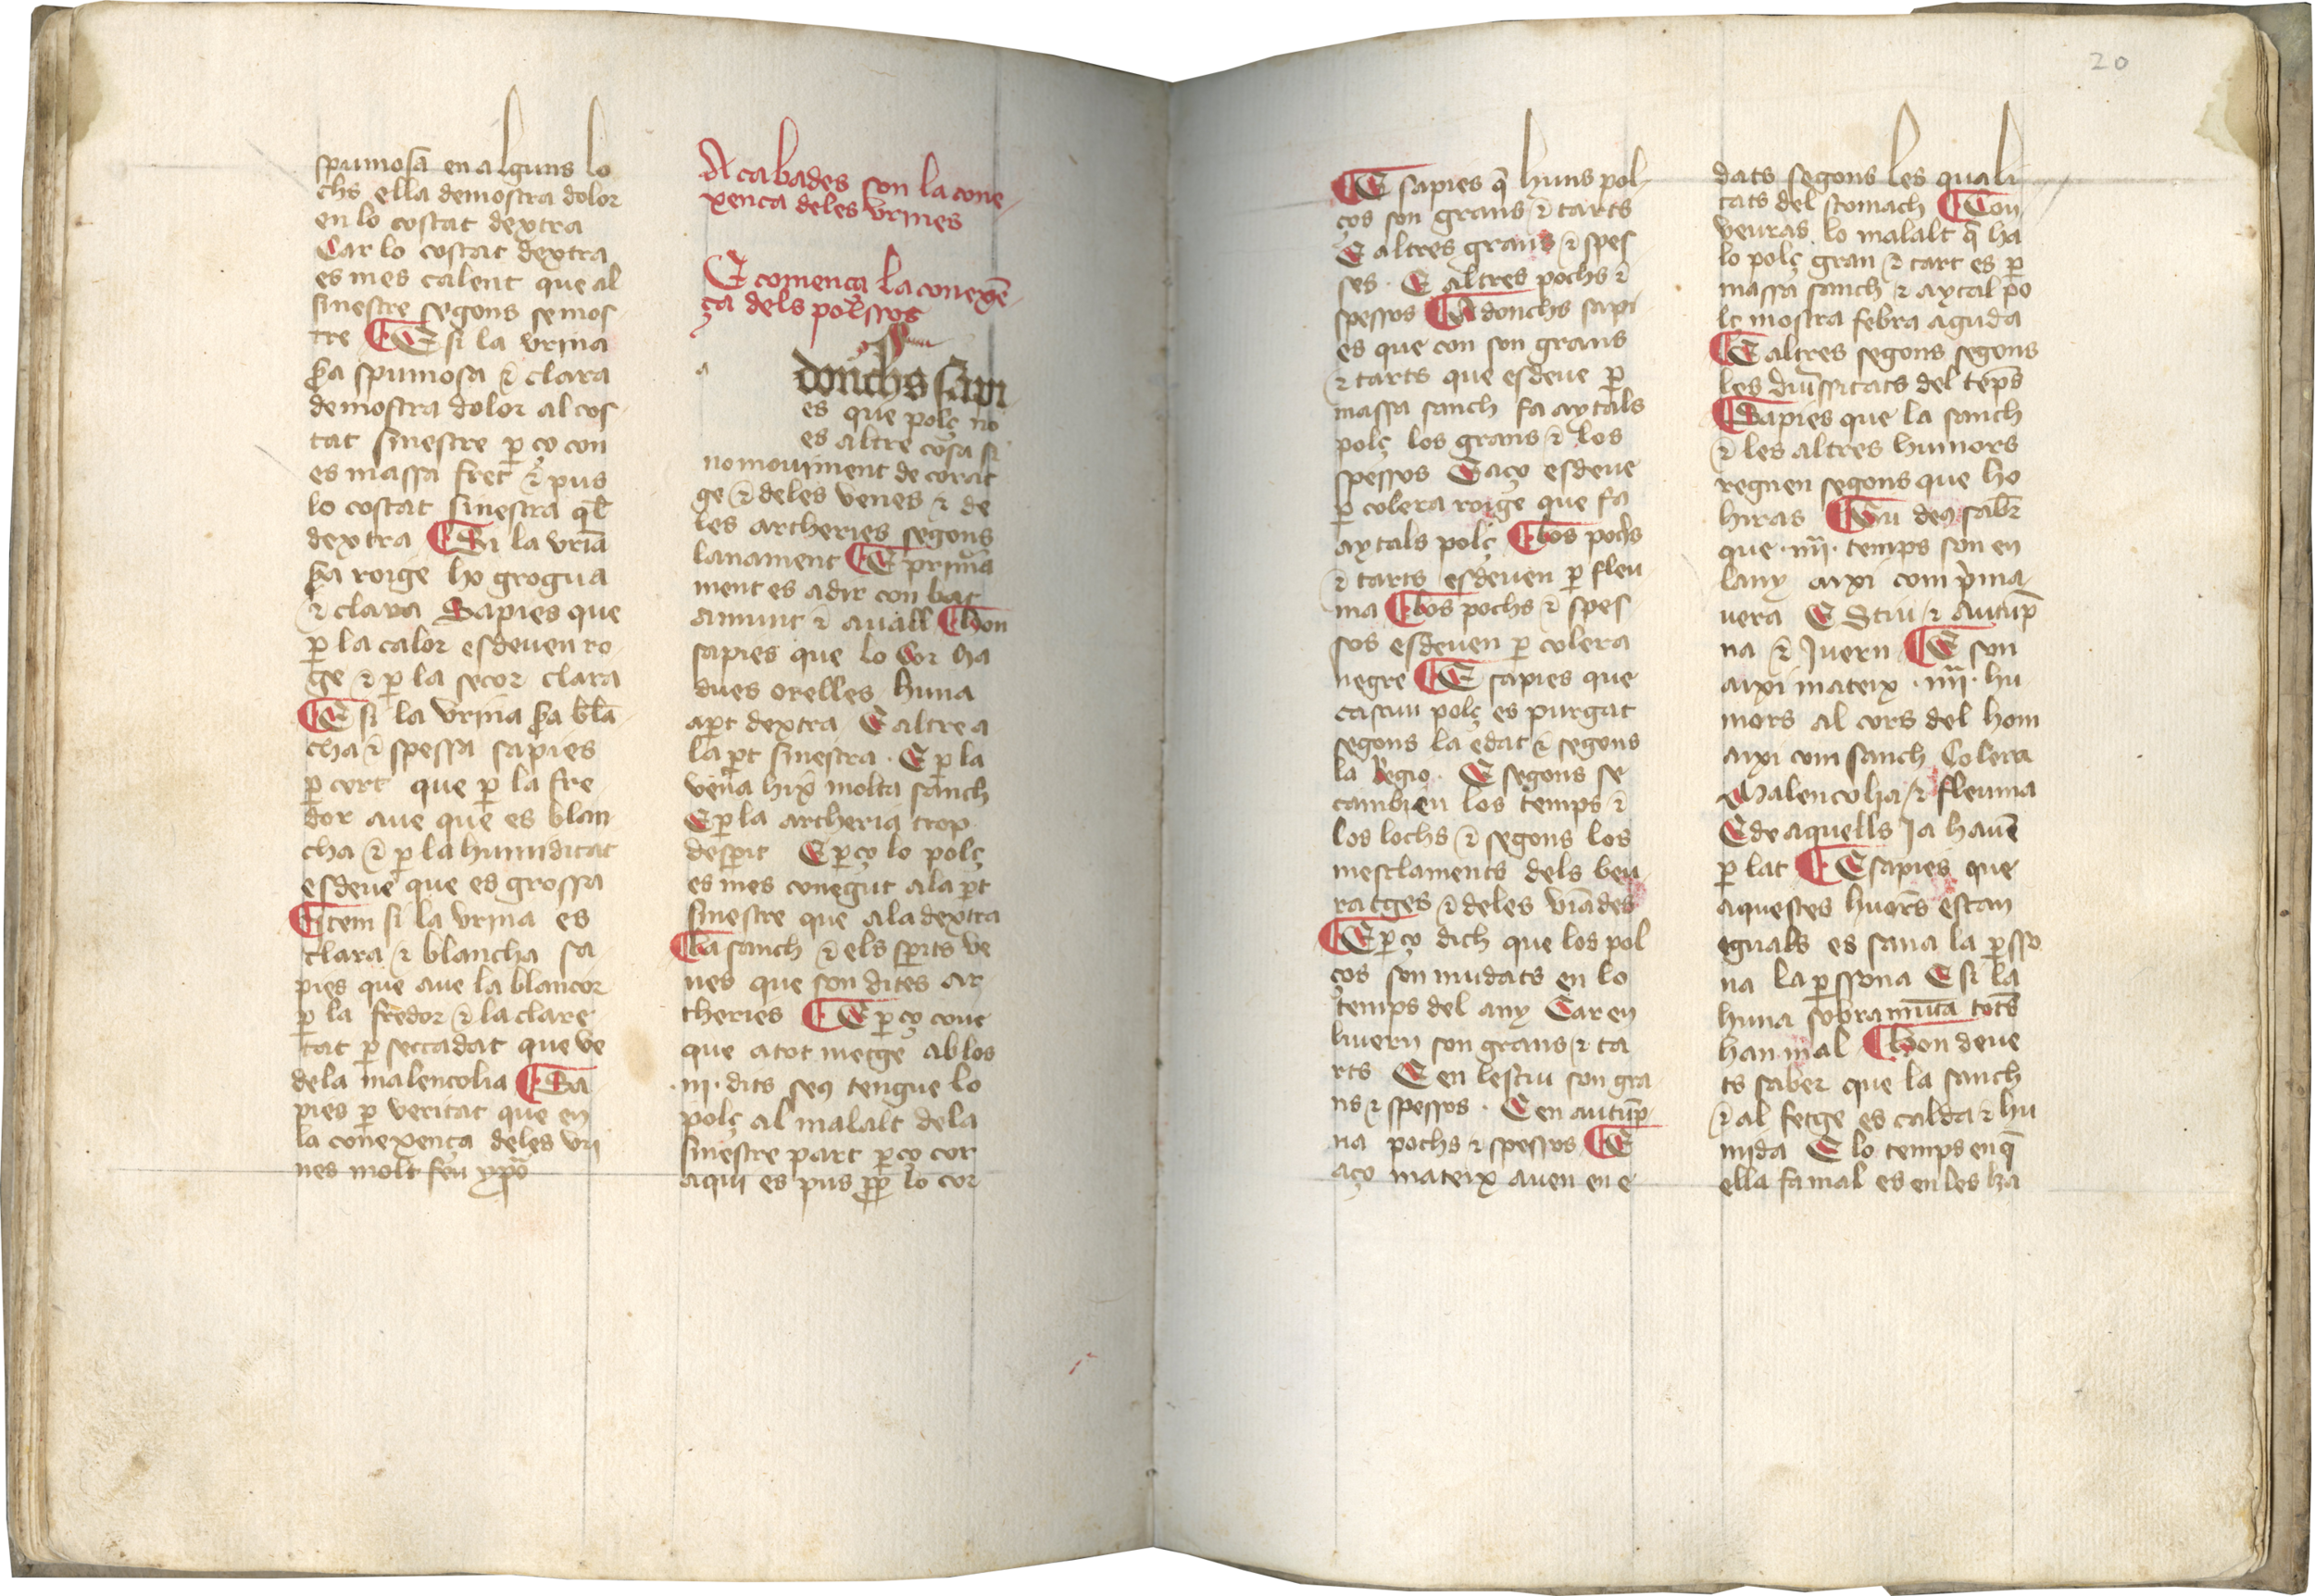 spumosa en alguns lo
chs ella demostra dolor
en lo costat dextra
Car lo costat dextra
es mes calent que al
sinestre segons se mos
tre ¶ E si la vrina
sẽra spumosa ⁊ clara
demostra dolor al cos
tat sinestre ꝑ ço con
es massa fret ⁊ pus
lo costat sinestra q̃l
dextra ¶ Si la vriã
sẽra roige ho grogua
⁊ clara Sapies que
ꝑ la calor esdeuen ro
ge ⁊ ꝑ la secor clara
¶ E si la vrina sẽra blã
cha ⁊ spessa sapies
ꝑ cert que ꝑ la fre
dor aue que es blan
cha ⁊ ꝑ la humiditat
esdeue que es grossa
¶ Item si la vrina es
clara ⁊ blancha sa
pies que aue la blancor
ꝑ la fredor ⁊ la clare
tat ꝑ seccadat que ve
dela malencolia ¶ Sa
pies ꝑ veritat que en
la conexença deles vri
nes molt feu ypõ
Acabades son la cone
xenca deles vrines
E comença la conexẽ
ça dels polssos
a
donchs sapi
es que polç no
es altre cosa si
no mouiment de corat
ge ⁊ deles venes ⁊ de
les artheries segons
lanament ¶ E prima
ment es adir con bat
amunt ⁊ auall ¶ Hon
sapies que lo Cor ha
dues orelles huna
aꝑt dextra E altre a
la ꝑt sinestra · E ꝑ la
vena hix molta sanch
E ꝑ la artheria trop
desꝑit E ꝑço lo polç
es mes conegut ala ꝑt
sinestre que ala dextra
¶ La sanch ⁊ els spits ve
nes que son dites ar
theries ¶ E ꝑço coue
que atot metge ab los
·iii· dits seꝯ tengue lo
polç al malalt dela
sinestre part ꝑço cor
aqui es pus ꝓp lo cor
20
¶ E sapies q̃ huns pol
ços son grans ⁊ tarts
E altres grans ⁊ spes
ses · E altres pochs ⁊
spessos ¶ Adonchs sapi
es que con son grans
⁊ tarts que esdeue ꝑ
massa sanch fa aytals
polç los grans ⁊ los
spessos E aço esdeue
ꝑ colera roige que fa
aytals polç ¶ Los pochs
⁊ tarts esdeuen ꝑ fleu
ma ¶ Los pochs ⁊ spes
sos esdeuen ꝑ colera
negre ¶ E sapies que
cascun polç es purgat
segons la edat ⁊ segons
la Regio · E segons se
cambien los temps ⁊
los lochs ⁊ segons los
mesclaments dels beu
ratges ⁊ deles viãdes
¶ E ꝑço dich que los pol
ços son mudats en lo
temps del any Car en
liuern son grans ⁊ ta
rts E en lestiu son gra
ns ⁊ spessos · E en autup̃
na pochs ⁊ spessos ¶ E
aço mateix auen en e
dats segons les quali
tats del stomach ¶ Con
veuras lo malalt q̃ ha
lo polç gran ⁊ tart es ꝑ
massa sanch ⁊ aytal po
lç mostra febra aguda
¶ E altres segons segons
les diuissitats del tep̃s
¶ Sapies que la sanch
⁊ les altres humors
regnen segons que ho
hiras ¶ Tu deꝯ sabr̃
que ·iiii· temps son en
lany aixi com p̃ma
uera E Stiu ⁊ Autup̃
na ⁊ Juern ¶ E son
aixi mateix ·iiii· hu
mors al cors del hom
aixi com sanch Colera
Malencolia ⁊ fleuma
E de aquells Ja hauẽ
ꝑ lat ¶ E sapies que
aquestes huõrs estan
eguals es sana la ꝑsso
na la ꝑssona E si la
huna sobramũta tots
han mal ¶ Hon deue
ts saber que la sanch
⁊ al fetge es calda ⁊ hu
mida E lo temps en q̃
ella fa mal es en les ha